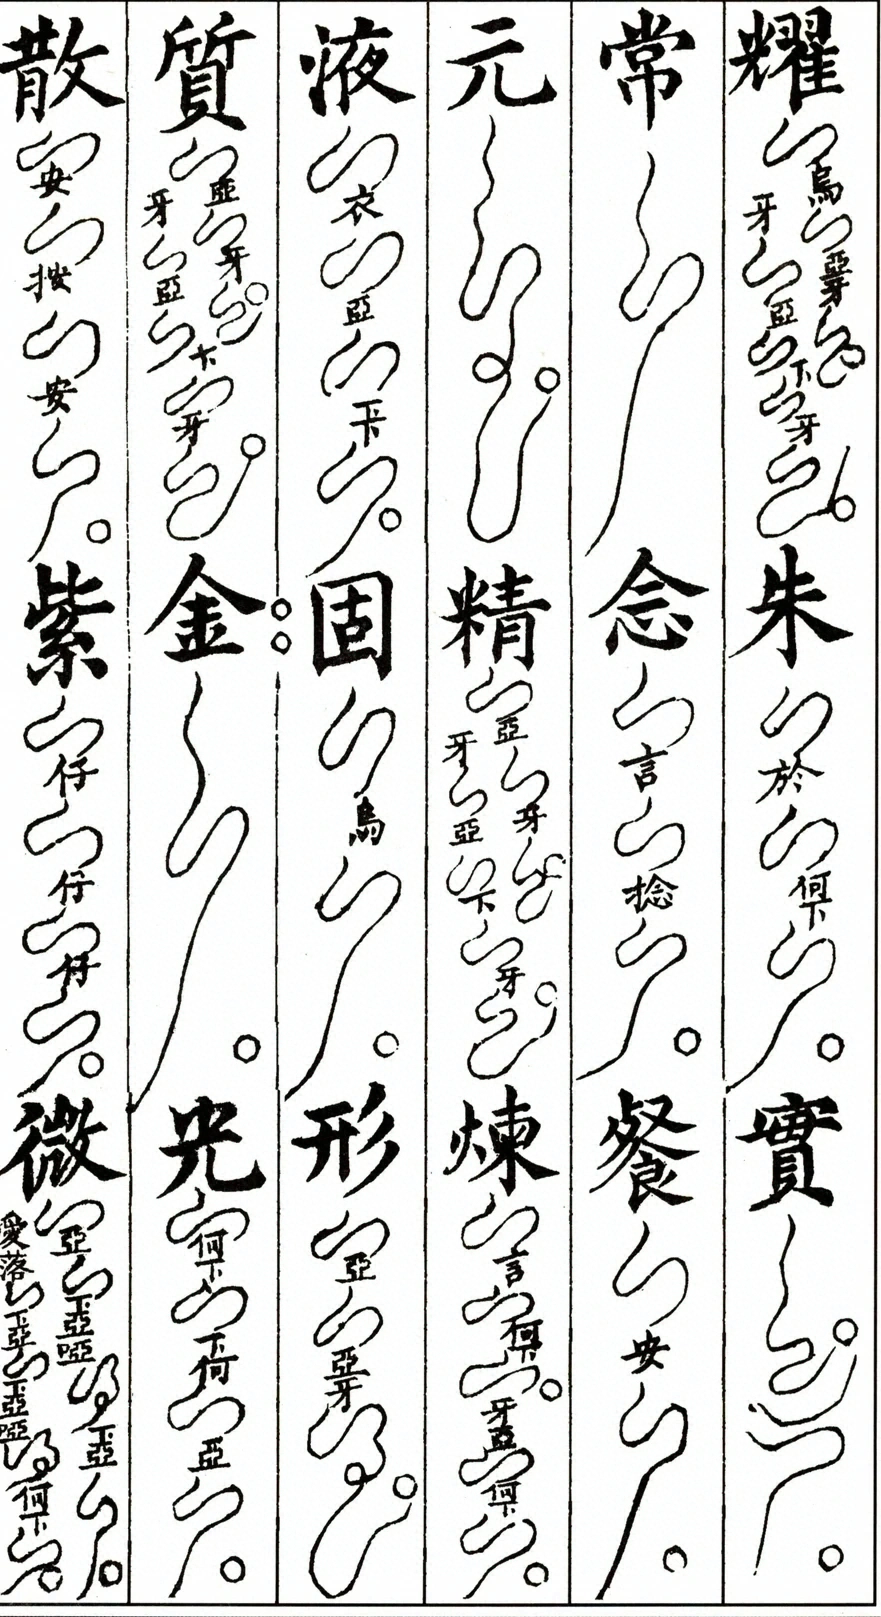 耀烏亞牙牙亞下牙朱於何下實
常念言捻餐安
元精亞牙牙亞下牙煉言何下牙亞何下
液衣亞下固烏形亞亞牙
質亞牙牙亞下牙金光何下下何亞
散安按安紫仔仔仔微亞下亞啞下亞愛落下亞下亞啞何下